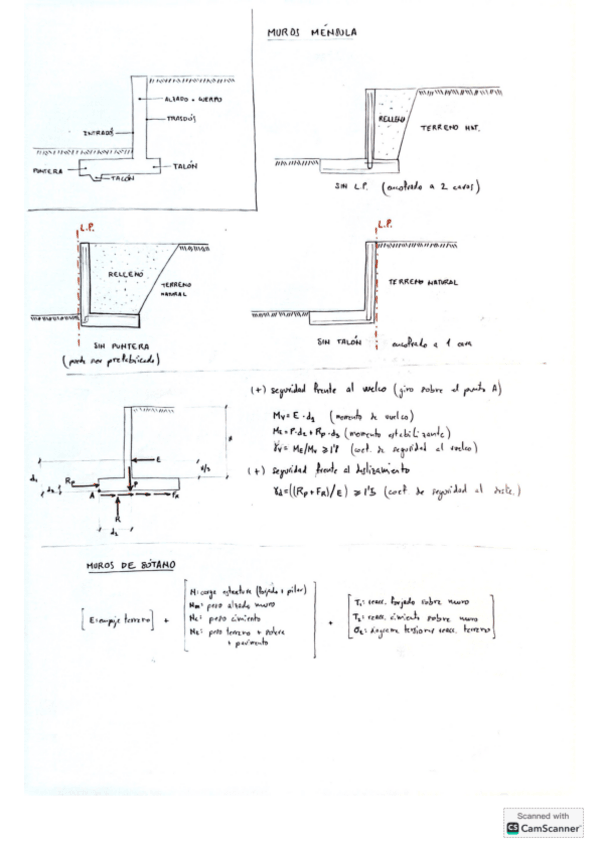 MUROS MÉNSULA
ALZADO o CUERPO
TRASDÓS
INTRADÓS
PUNTERA
TALÓN
TALÓN
RELLENO
TERRENO NAT.
SIN L.P. (encofrado a 2 caras)
L.P.
RELLENO
TERRENO
NATURAL
SIN PUNTERA
(puede ser prefabricado)
L.P.
TERRENO NATURAL
SIN TALÓN encofrado a 1 cara
(+) seguridad frente al vuelco (giro sobre el punto A)
Mv = E · d1 (momento de vuelco)
Me = P · d2 + Rp · d3 (momento estabilizante)
γv = Me/Mv ≥ 1'8 (coef. de seguridad al vuelco)
(+) seguridad frente al deslizamiento
γd = ((Rp + FR)/E) ≥ 1'5 (coef. de seguridad al desliz.)
E
d1
Rp
A
P
FR
R
d2
MUROS DE SÓTANO
[E: empuje terreno] +
N: carga estructura (forjado + pilar)
Nm: peso alzado muro
Nc: peso cimiento
peso terreno + solera
+ pavimento
+
T1: reacc. forjado sobre muro
T2: reacc. cimiento sobre muro
diagrama tensiones reacc. terreno
Scanned with
CS CamScanner